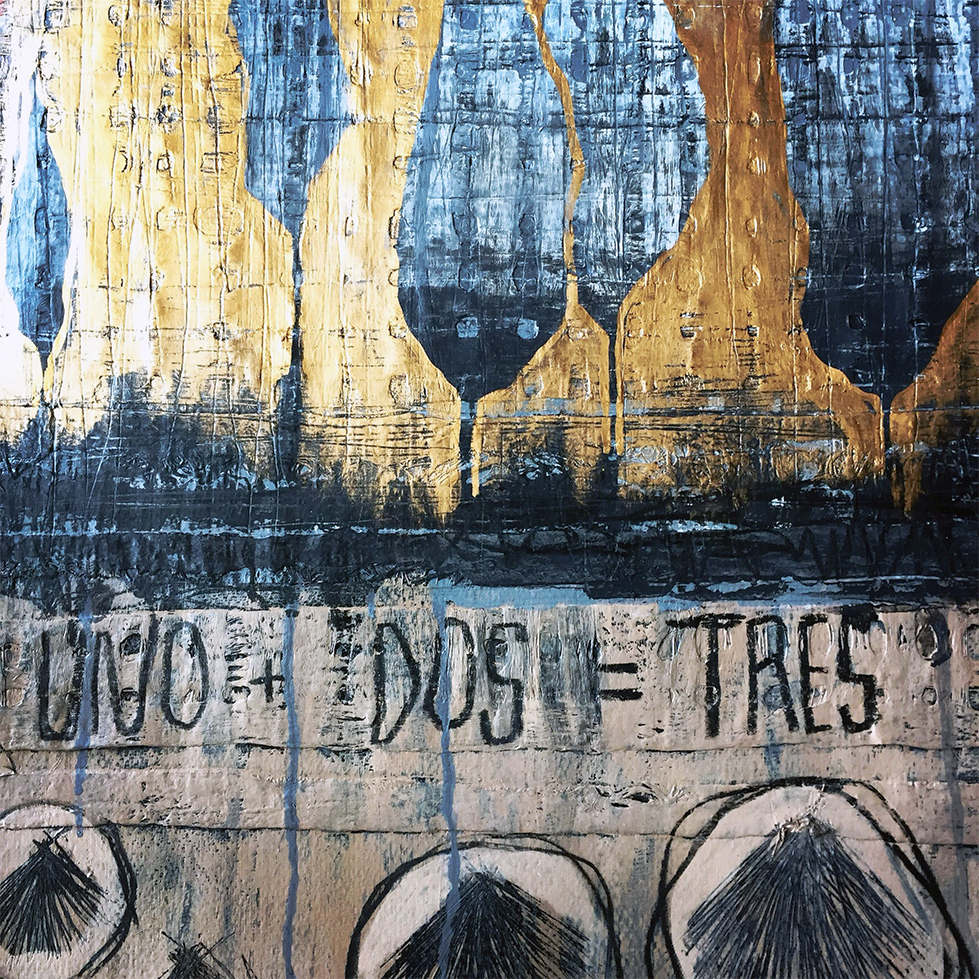 UNO + DOS = TRES